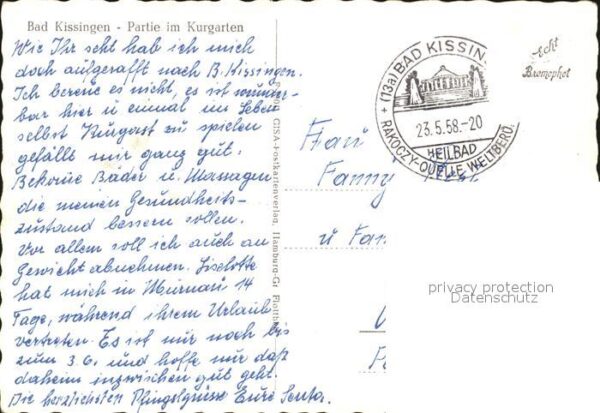 Bad Kissingen - Partie im Kurgarten
Wie Ihr seht hab ich mich
doch aufgerafft nach B. Kissingen.
Ich bereue es nicht, es ist wunder-
bar hier u einmal im Leben
selbst Kurgast zu spielen
gefällt mir ganz gut.
Bekomme Bäder u. Massagen
die meinen Gesundheits-
zustand bessern sollen.
Vor allem soll ich auch an
Gewicht abnehmen. Liselotte
hat mich in Murnau 14
Tage, während ihrem Urlaub
vertreten. Es ist nur noch bis
zum 3.6. und hoffe nur daß
daheim inzwischen gut geht.
Die herzlichsten Pfingstgrüsse Eure Senta.
GISA-Postkartenverlag, Hamburg-Gr. Flottb
(13a) BAD KISSIN
23.5.58.-20
HEILBAD
RAKOCZY-QUELLE WELTBERÜ
Echt
Bromophot
Frau
Fanny
u Fam
privacy protection
Datenschutz